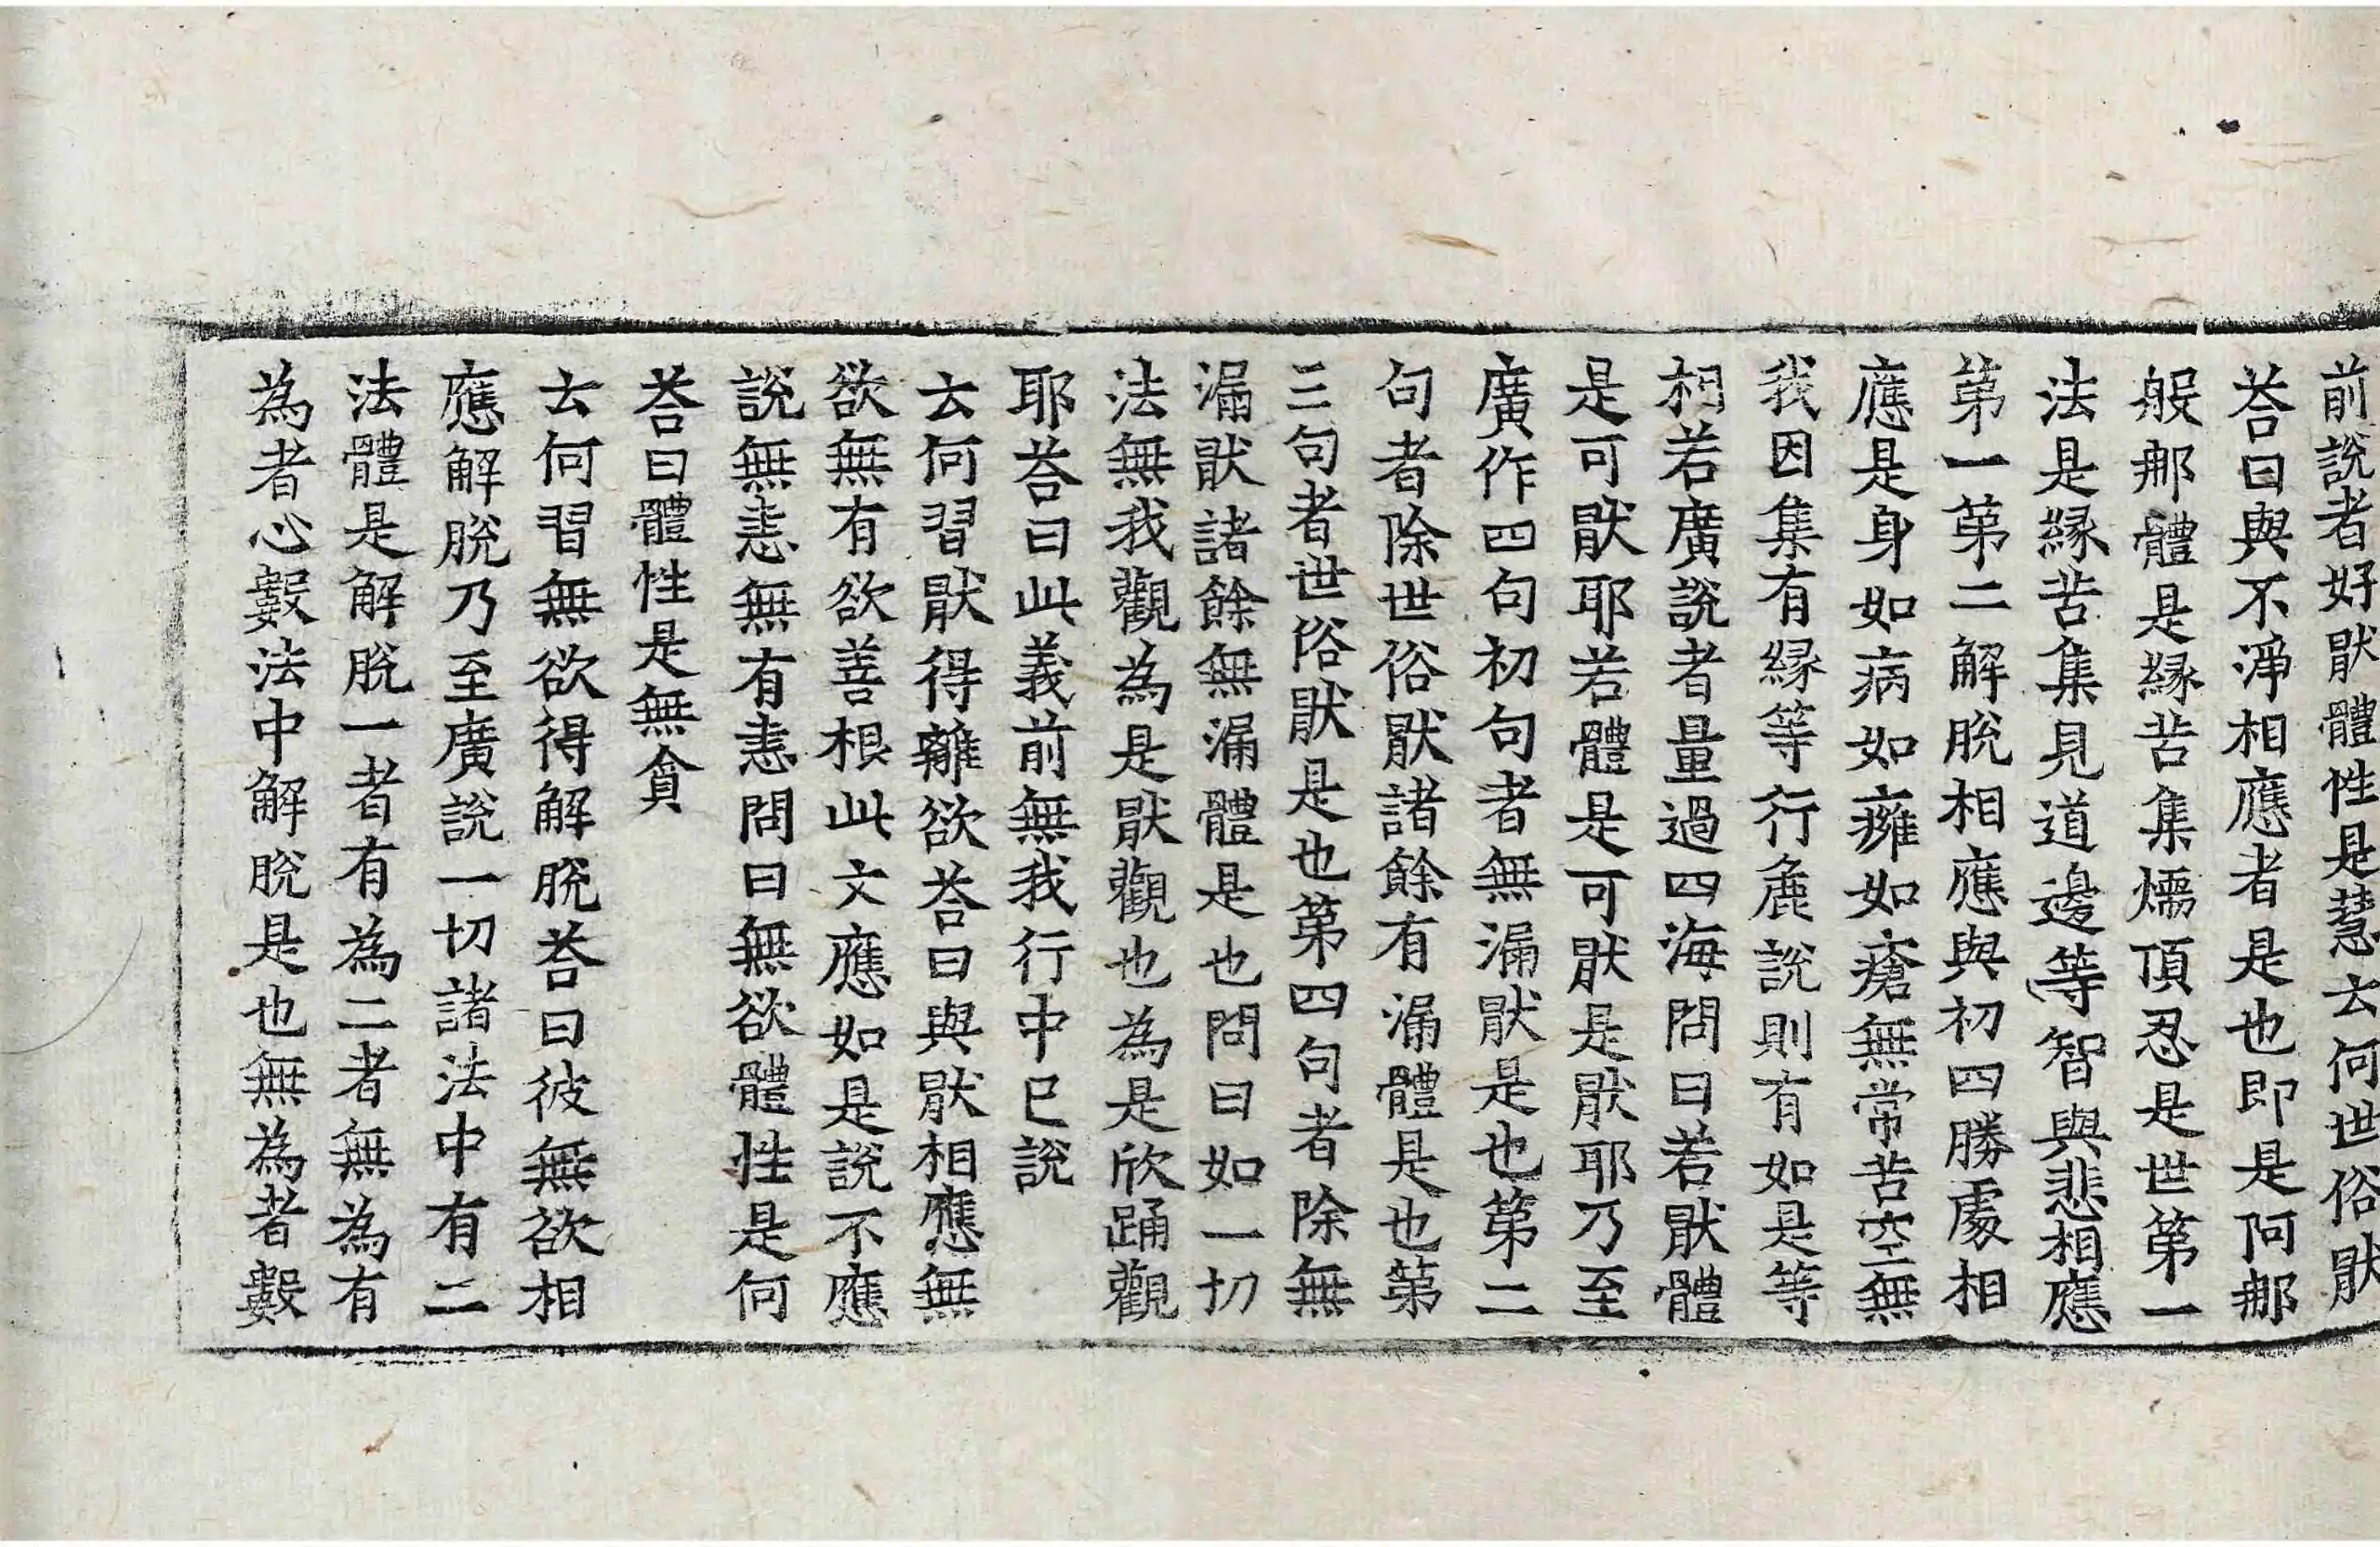 前說者好猒體性是慧云何世俗猒
荅曰與不淨相應者是也即是阿那
般那體是緣苦集煗頂忍是世第一
法是緣苦集見道邊等智與悲相應
第一第二解脫相應與初四勝處相
應是身如病如癰如瘡無常苦空無
我因集有緣等行麁說則有如是等
柯若廣說者量過四海問曰若猒體
是可猒耶若體是可猒是猒耶乃至
廣作四句初句者無漏猒是也第二
句者除世俗猒諸餘有漏體是也第
三句者世俗猒是也第四句者除無
漏猒諸餘無漏體是也問曰如一切
法無我觀為是猒觀也為是欣踊觀
耶荅曰此義前無我行中已說
云何習猒得離欲荅曰與猒相應無
欲無有欲善根此文應如是說不應
說無恚無有恚問曰無欲體性是何
荅曰體性是無貪
云何習無欲得解脫荅曰彼無欲相
應解脫乃至廣說一切諸法中有二
法體是解脫一者有為二者無為有
為者心數法中解脫是也無為者數